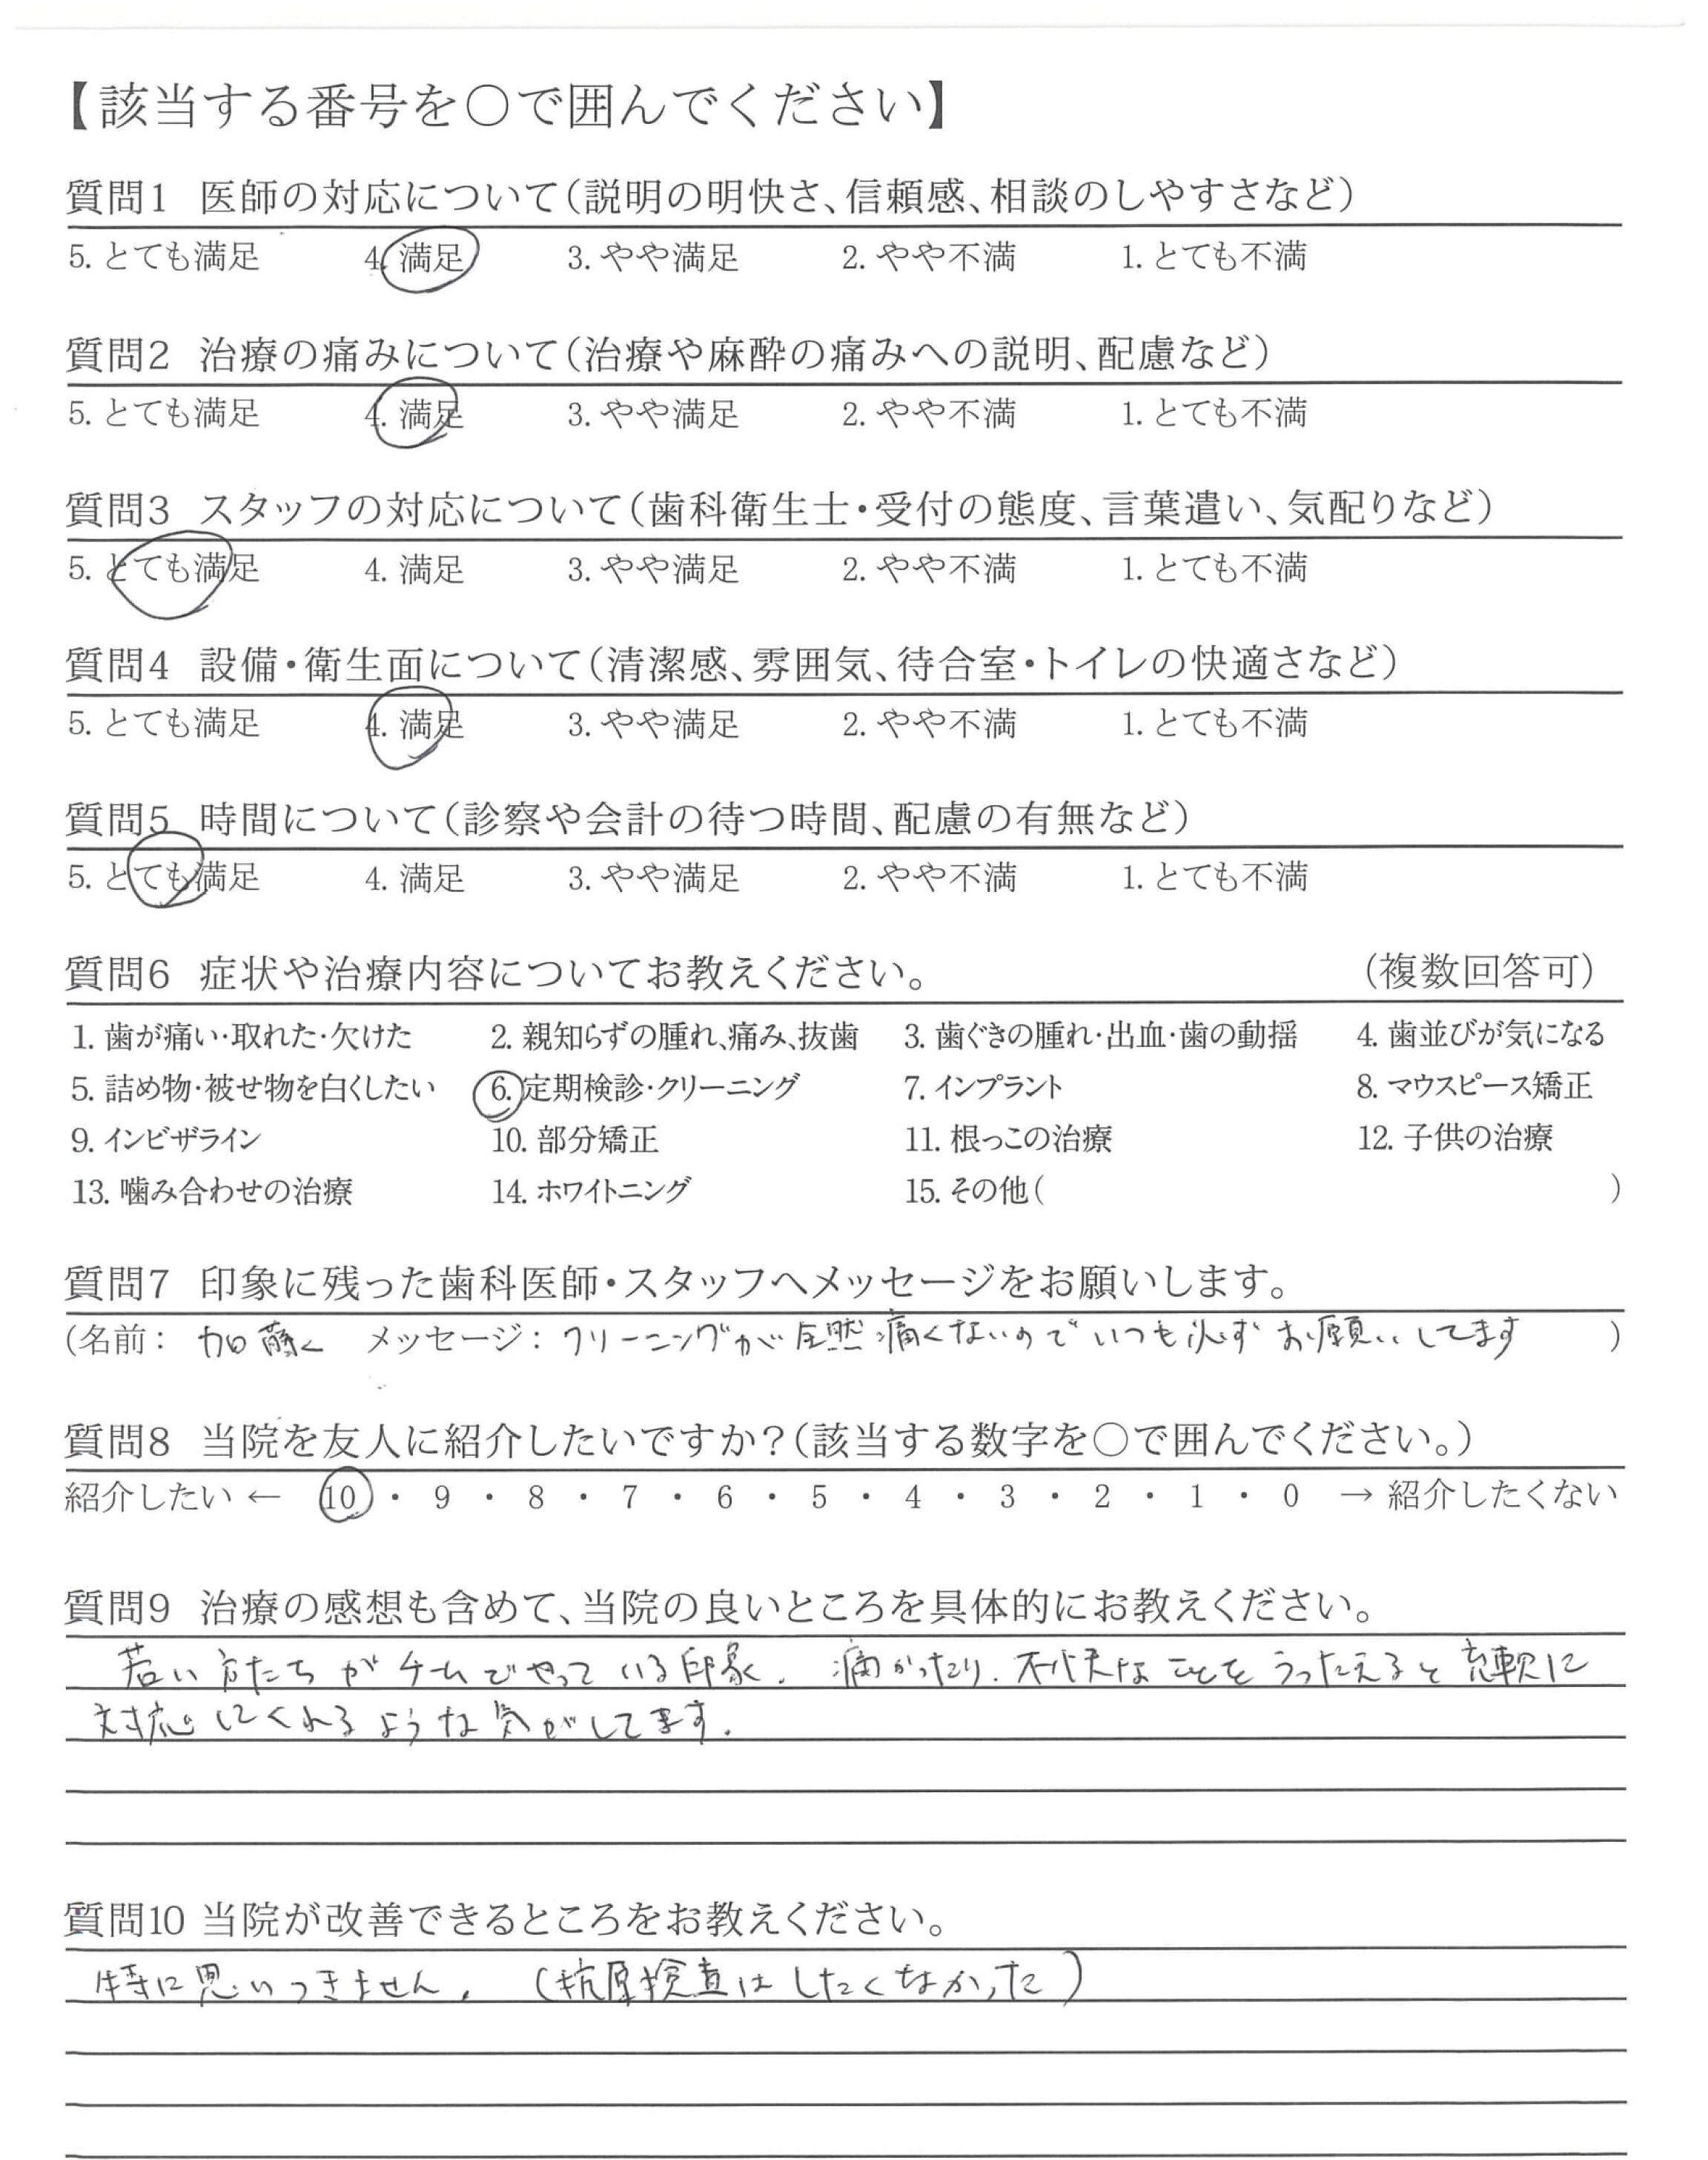 【該当する番号を○で囲んでください】
質問1 医師の対応について（説明の明快さ、信頼感、相談のしやすさなど）
5. とても満足 4. 満足 3. やや満足 2. やや不満 1. とても不満
質問2 治療の痛みについて（治療や麻酔の痛みへの説明、配慮など）
5. とても満足 4. 満足 3. やや満足 2. やや不満 1. とても不満
質問3 スタッフの対応について（歯科衛生士・受付の態度、言葉遣い、気配りなど）
5. とても満足 4. 満足 3. やや満足 2. やや不満 1. とても不満
質問4 設備・衛生面について（清潔感、雰囲気、待合室・トイレの快適さなど）
5. とても満足 4. 満足 3. やや満足 2. やや不満 1. とても不満
質問5 時間について（診察や会計の待つ時間、配慮の有無など）
5. とても満足 4. 満足 3. やや満足 2. やや不満 1. とても不満
質問6 症状や治療内容についてお教えください。 （複数回答可）
1. 歯が痛い・取れた・欠けた 2. 親知らずの腫れ、痛み、抜歯 3. 歯ぐきの腫れ・出血・歯の動揺 4. 歯並びが気になる
5. 詰め物・被せ物を白くしたい 6. 定期検診・クリーニング 7. インプラント 8. マウスピース矯正
9. インビザライン 10. 部分矯正 11. 根っこの治療 12. 子供の治療
13. 噛み合わせの治療 14. ホワイトニング 15. その他（ ）
質問7 印象に残った歯科医師・スタッフへメッセージをお願いします。
（名前： 加藤 メッセージ： クリーニングが全然痛くないのでいつも必ずお願いしてます ）
質問8 当院を友人に紹介したいですか？（該当する数字を○で囲んでください。）
紹介したい ← 10 ・ 9 ・ 8 ・ 7 ・ 6 ・ 5 ・ 4 ・ 3 ・ 2 ・ 1 ・ 0 → 紹介したくない
質問9 治療の感想も含めて、当院の良いところを具体的にお教えください。
若い方たちがチームでやっている印象。痛かったり、なことをうったえると気軽に
対応してくれるような気がしてます。
質問10 当院が改善できるところをお教えください。
特に思いつきません。（抗原検査はしたくなかった）